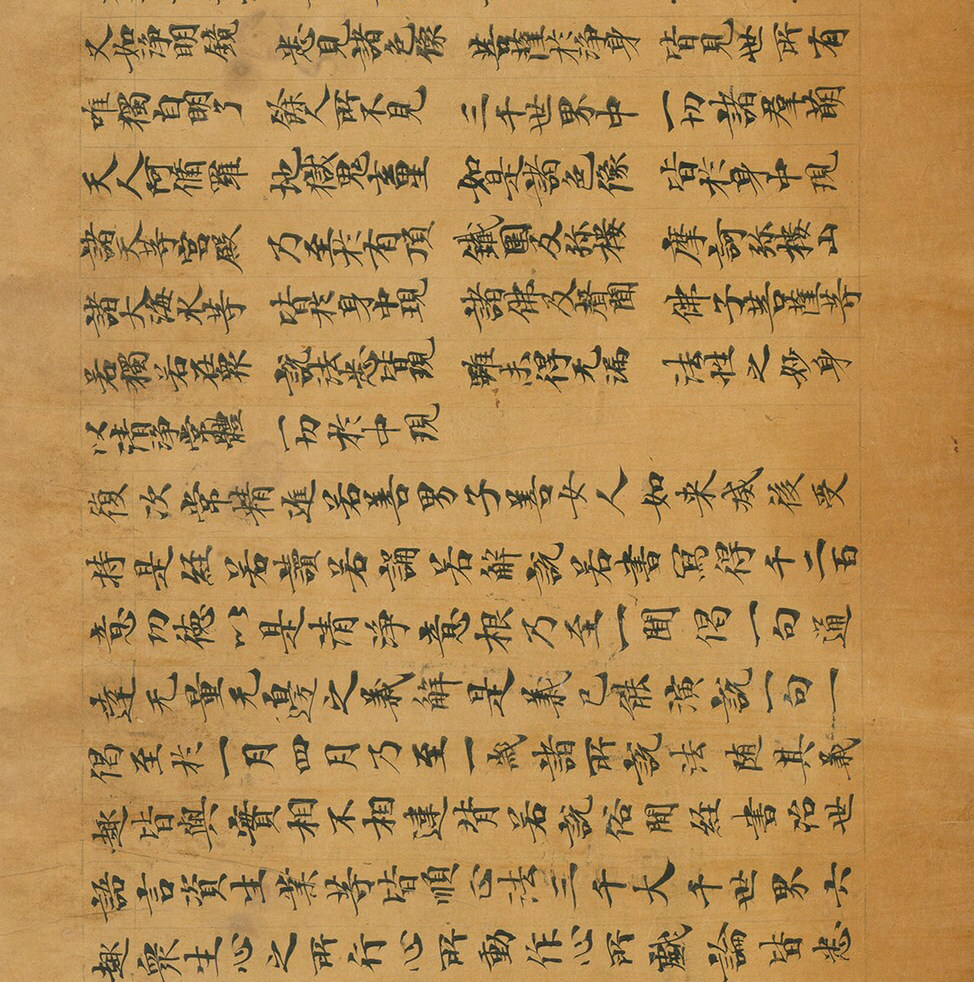 又如淨明鏡 悉見諸色像 菩薩於淨身 皆見世所有
唯獨自明了 餘人所不見 三千世界中 一切諸羣萌
天人阿脩羅 地獄鬼畜生 如是諸色像 皆於身中現
諸天等宮殿 乃至於有頂 鐵圍及弥樓 摩訶弥樓山
諸大海水等 皆於身中現 諸佛及聲聞 佛子菩薩等
若獨若在衆 說法悉皆現 雖未得无漏 法性之妙身
以清淨常體 一切於中現
復次常精進若善男子善女人如来滅後受
持是経若讀若誦若解說若書寫得千二百
意功德以是清淨意根乃至一聞偈一句通
達无量无邊之義解是義已能演說一句一
偈至於一月四月乃至一歳諸所說法随其義
趣皆與實相不相違背若說俗間経書治世
語言資生業等皆順正法三千大千世界六
趣衆生心之所行心所動作心所戲論皆悉